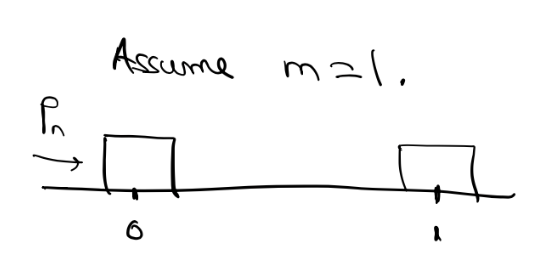 Assume m=1.
Pn
0 1